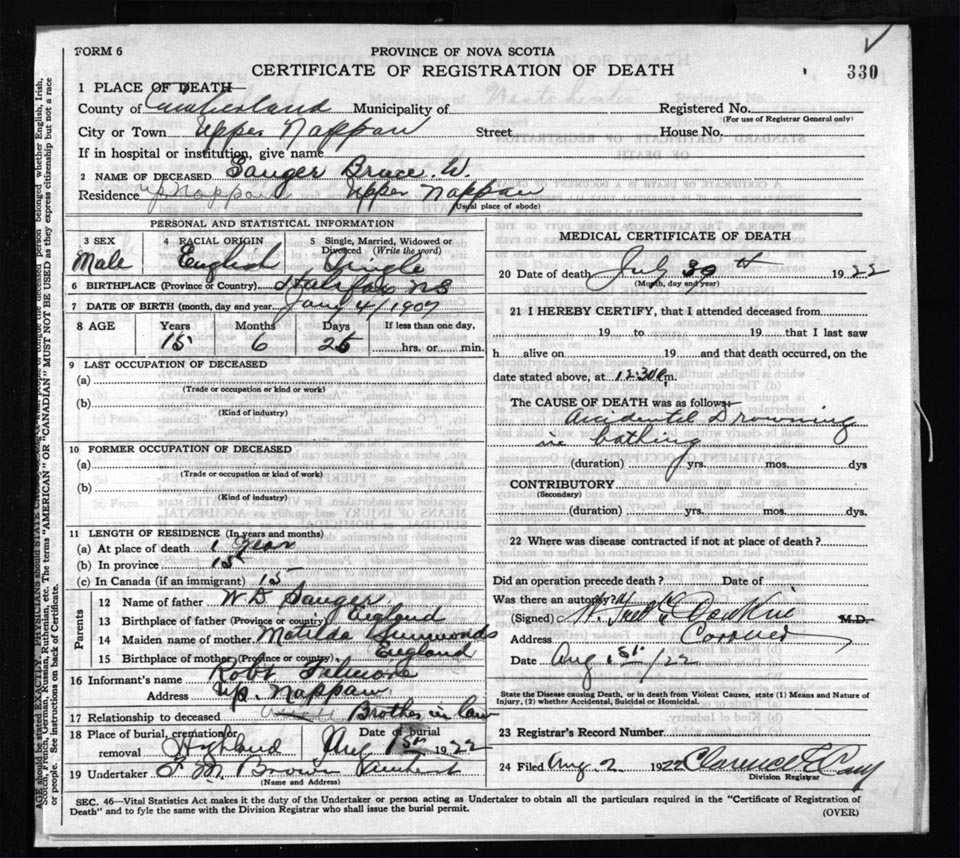 FORM 6
PROVINCE OF NOVA SCOTIA
CERTIFICATE OF REGISTRATION OF DEATH
330
1 PLACE OF DEATH—
County of Cumberland Municipality of Registered No.
(For use of Registrar General only)
City or Town Upper Nappan Street House No.
If in hospital or institution, give name
2 NAME OF DECEASED Sanger Bruce W.
Residence Up Nappan Upper Nappan
(Usual place of abode)
PERSONAL AND STATISTICAL INFORMATION
3 SEX 4 RACIAL ORIGIN 5 Single, Married, Widowed or Divorced (Write the word)
Male English Single
6 BIRTHPLACE (Province or Country) Halifax NS
7 DATE OF BIRTH (month, day and year) Jany 4/1907
8 AGE Years Months Days If less than one day,
15 6 25 hrs. or min.
9 LAST OCCUPATION OF DECEASED
(a)
(Trade or occupation or kind of work)
(b)
(Kind of industry)
10 FORMER OCCUPATION OF DECEASED
(a)
(Trade or occupation or kind of work)
(b)
(Kind of industry)
11 LENGTH OF RESIDENCE (In years and months)
(a) At place of death 1 year
(b) In province 15
(c) In Canada (if an immigrant) 15
Parents
12 Name of father W D Sanger
13 Birthplace of father (Province or country) England
14 Maiden name of mother Matilda Simmonds
15 Birthplace of mother (Province or country) England
16 Informant's name Robt
Address Up. Nappan
17 Relationship to deceased Brother in law
18 Place of burial, cremation or removal Highland Date of burial Aug 1st 1922
19 Undertaker F M Brown Amherst
(Name and Address)
MEDICAL CERTIFICATE OF DEATH
20 Date of death July 30th 1922
(Month, day and year)
21 I HEREBY CERTIFY, that I attended deceased from
19 to 19 that I last saw
h alive on 19 and that death occurred, on the
date stated above, at 12:30 P.m.
The CAUSE OF DEATH was as follows:
Accidentil Drowning
in bathing
(duration) yrs. mos. dys
CONTRIBUTORY
(Secondary)
(duration) yrs. mos. dys.
22 Where was disease contracted if not at place of death?
Did an operation precede death? Date of
Was there an autopsy?
(Signed) M.D.
Address Coroner
Date Aug 1st/22
State the Disease causing Death, or in death from Violent Causes, state (1) Means and Nature of
Injury, (2) whether Accidental, Suicidal or Homicidal.
23 Registrar's Record Number
24 Filed Aug. 2 1922 Clarence E Cary
Division Registrar
SEC. 46—Vital Statistics Act makes it the duty of the Undertaker or person acting as Undertaker to obtain all the particulars required in the "Certificate of Registration of
Death" and to fyle the same with the Division Registrar who shall issue the burial permit.
(OVER)
AGE should be stated EXACTLY. PHYSICIANS should state
Scotch, French, German, Russian, Ruthenian, etc. The terms "AMERICAN" or "CANADIAN" MUST NOT BE USED as they express citizenship but not a race
or people. See instructions on back of Certificate.
deceased person belonged whether English, Irish,